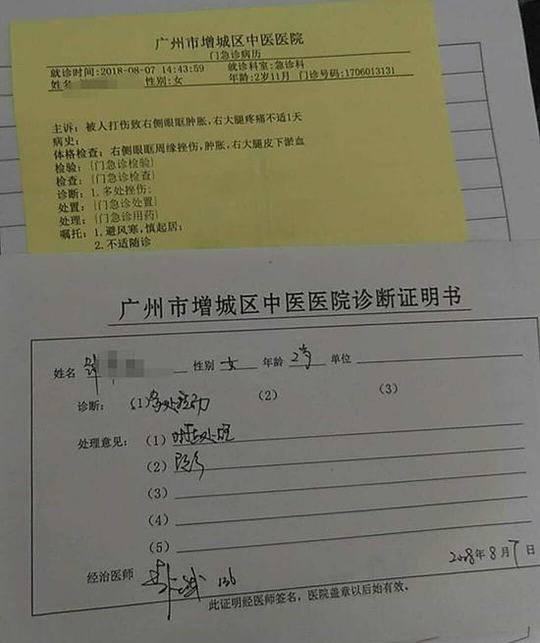 广州市增城区中医医院
门急诊病历
就诊时间:2018-08-07 14:43:59 就诊科室:急诊科
姓名 性别:女 年龄:2岁11月 门诊号码:1706013131
主诉: 被人打伤致右侧眼眶肿胀,右大腿疼痛不适1天
病史:
体格检查: 右侧眼眶周缘挫伤,肿胀,右大腿皮下淤血
检验: {门急诊检验}
检查: {门急诊检查}
诊断: 1.多处挫伤;
处置: {门急诊处置}
处理: {门急诊用药}
嘱托: 1.避风寒,慎起居;
2.不适随诊
广州市增城区中医医院诊断证明书
姓名 性别 女 年龄 2岁 单位
诊断: (1)多处挫伤 (2) (3)
处理意见: (1) 对症处理
(2) 随诊
(3)
(4)
(5)
2018年8月7日
经治医师 136
此证明经医师签名,医院盖章以后始有效。